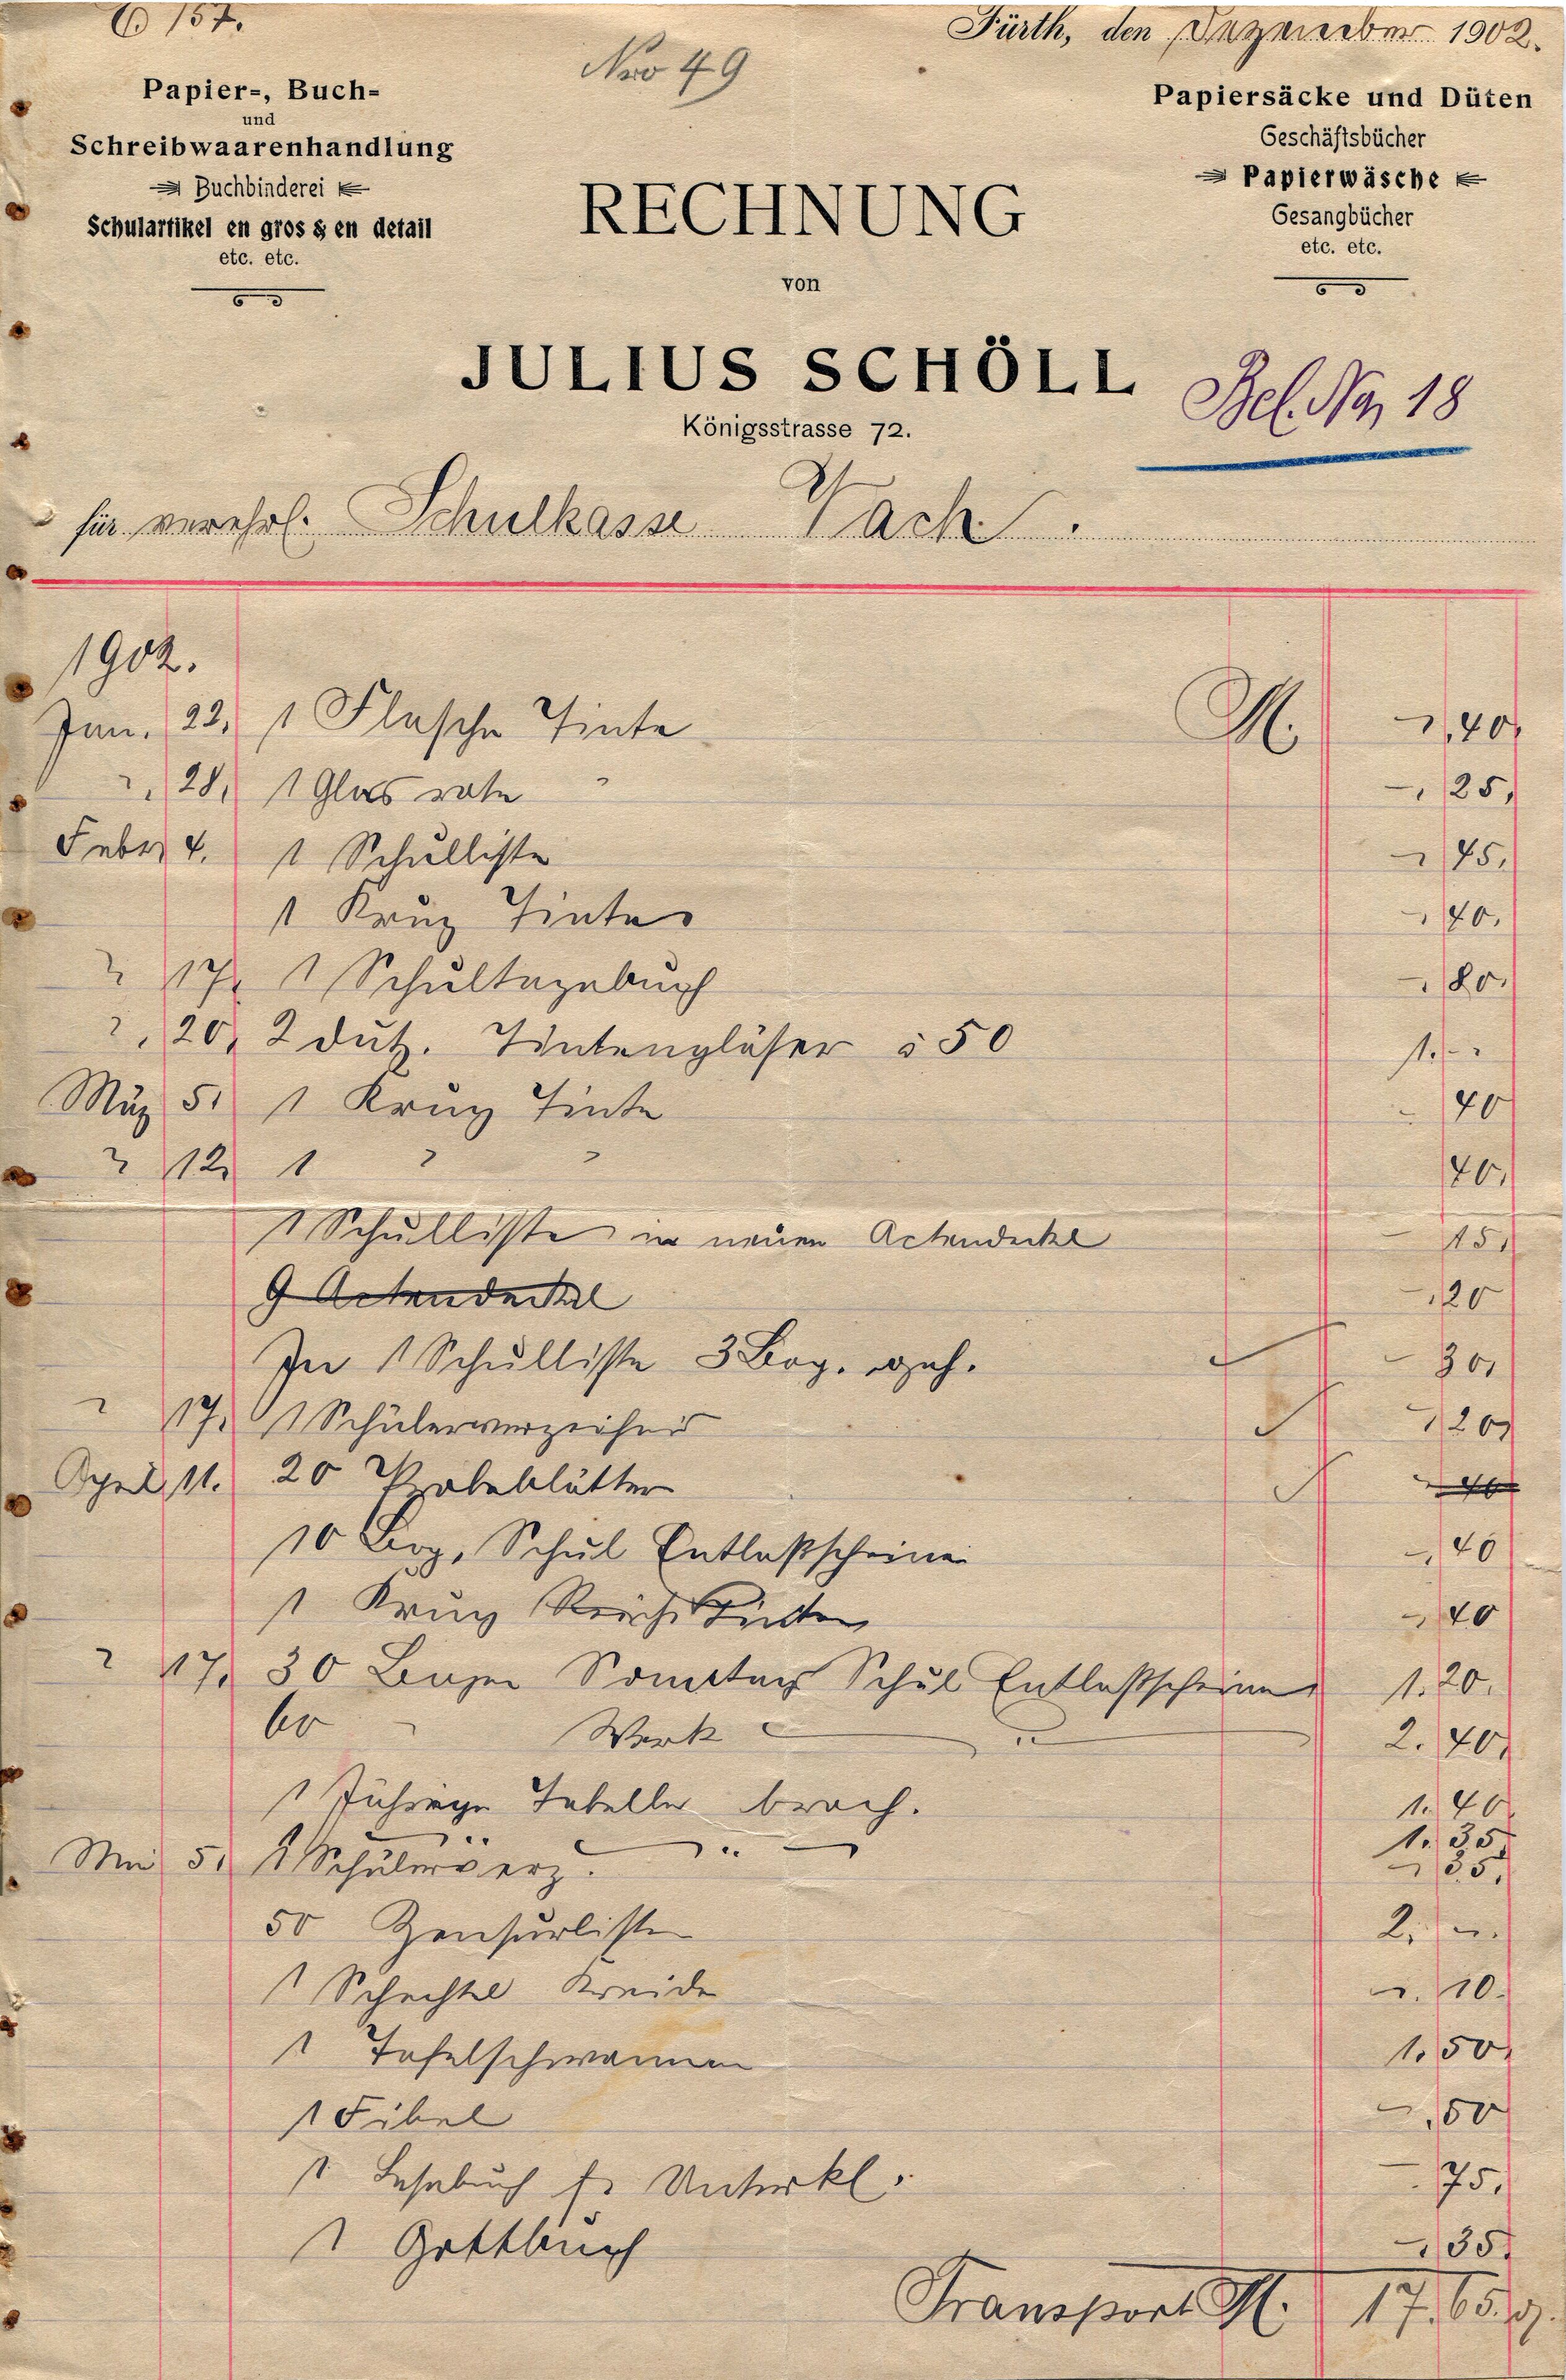 157.
Nro 49
Fürth, den Dezember 1902.
Papier-, Buch-
und
Schreibwaarenhandlung
Buchbinderei
Schulartikel en gros & en detail
etc. etc.
Papiersäcke und Düten
Geschäftsbücher
Papierwäsche
Gesangbücher
etc. etc.
RECHNUNG
von
JULIUS SCHÖLL
Königsstrasse 72.
Bel. No 18
für verehrl. Schulkasse Vach.
1902.
Jan. 22. 1 Flasche Tinte M. -,40,
" 28, 1 Glas rote " -,25,
Febr. 4. 1 Schulliste -,45,
1 Krug Tinte -,40,
" 17, 1 Schultagebuch -,80,
" 20, 2 dutz. Tintengläser à 50 1.-
März 5, 1 Krug Tinte -,40
" 12, 1 " " 40,
1 Schulliste in neuen Actendeckel -,15,
9 Actendeckel -,20
In 1 Schulliste 3 Bog. geh. - 30,
" 17, 1 Schülerverzeichnis -,20,
April 11. 20 Probeblätter
10 Bog. Schul Entlaßscheine -,40
1 Krug Tinte -,40
" 17, 30 Bogen Sonntags Schul Entlaßscheine 1.20.
60 " Werk " 2.40,
1 Jährige Tabelle broch. 1.40
1.35,
Mai 5, 1 Schülerverz. " -,35,
50 Zensurliste 2,-.
1 Schachtel Kreide -.10.
1 Tafelschwamm 1.50,
1 Fibel -,50
1 Lesebuch f. Unterkl. -.75,
1 Gottbüch -,35,
Transport M. 17,65.